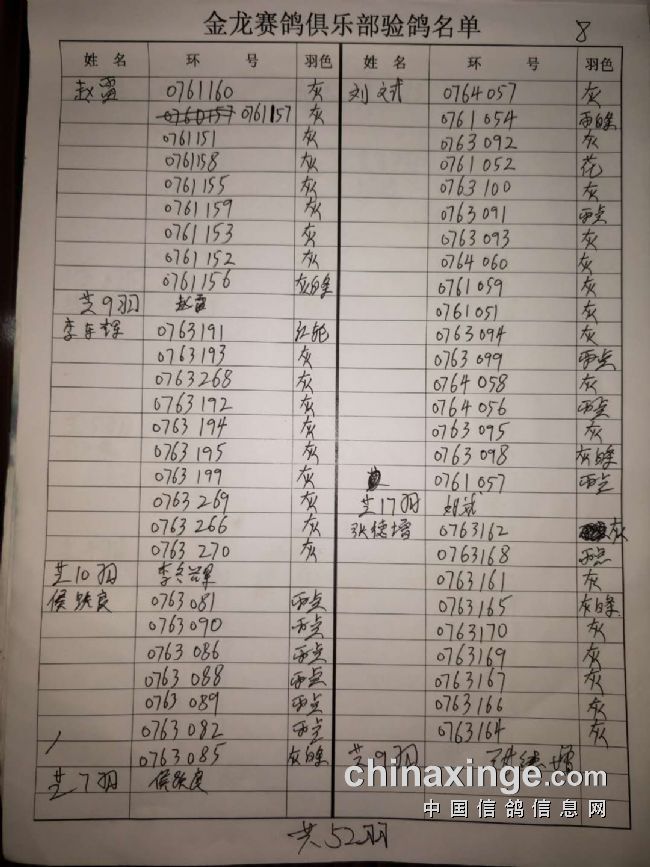 金龙赛鸽俱乐部验鸽名单
8
姓 名 环 号 羽色
赵雷 0761160 灰
0761157 灰
0761151 灰
0761158 灰
0761155 灰
0761159 灰
0761153 灰
0761152 灰
0761156 灰白条
共9羽 赵雷
0763191 红轮
0763193 灰
0763268 灰
0763192 灰
0763194 灰
0763195 灰
0763199 灰
0763269 灰
0763266 灰
0763270 灰
共10羽
侯跃良 0763081 雨点
0763090 雨点
0763086 雨点
0763088 雨点
0763089 雨点
0763082 雨点
0763085 灰白条
共7羽 侯跃良
姓 名 环 号 羽色
刘斌 0764057 灰
0761054 雨白条
0763092 灰
0761052 花
0763100 灰
0763091 雨点
0763093 灰
0764060 灰
0761059 灰
0761051 灰
0763094 灰
0763099 雨点
0764058 灰
0764056 雨点
0763095 灰
0763098 灰白条
0761057 雨点
共17羽 刘斌
张德增 0763162 灰
0763168 雨点
0763161 灰
0763165 灰白条
0763170 灰
0763169 灰
0763167 灰
0763166 灰
0763164 灰
共9羽 张德增
共52羽
chinaxinge.com
中国信鸽信息网